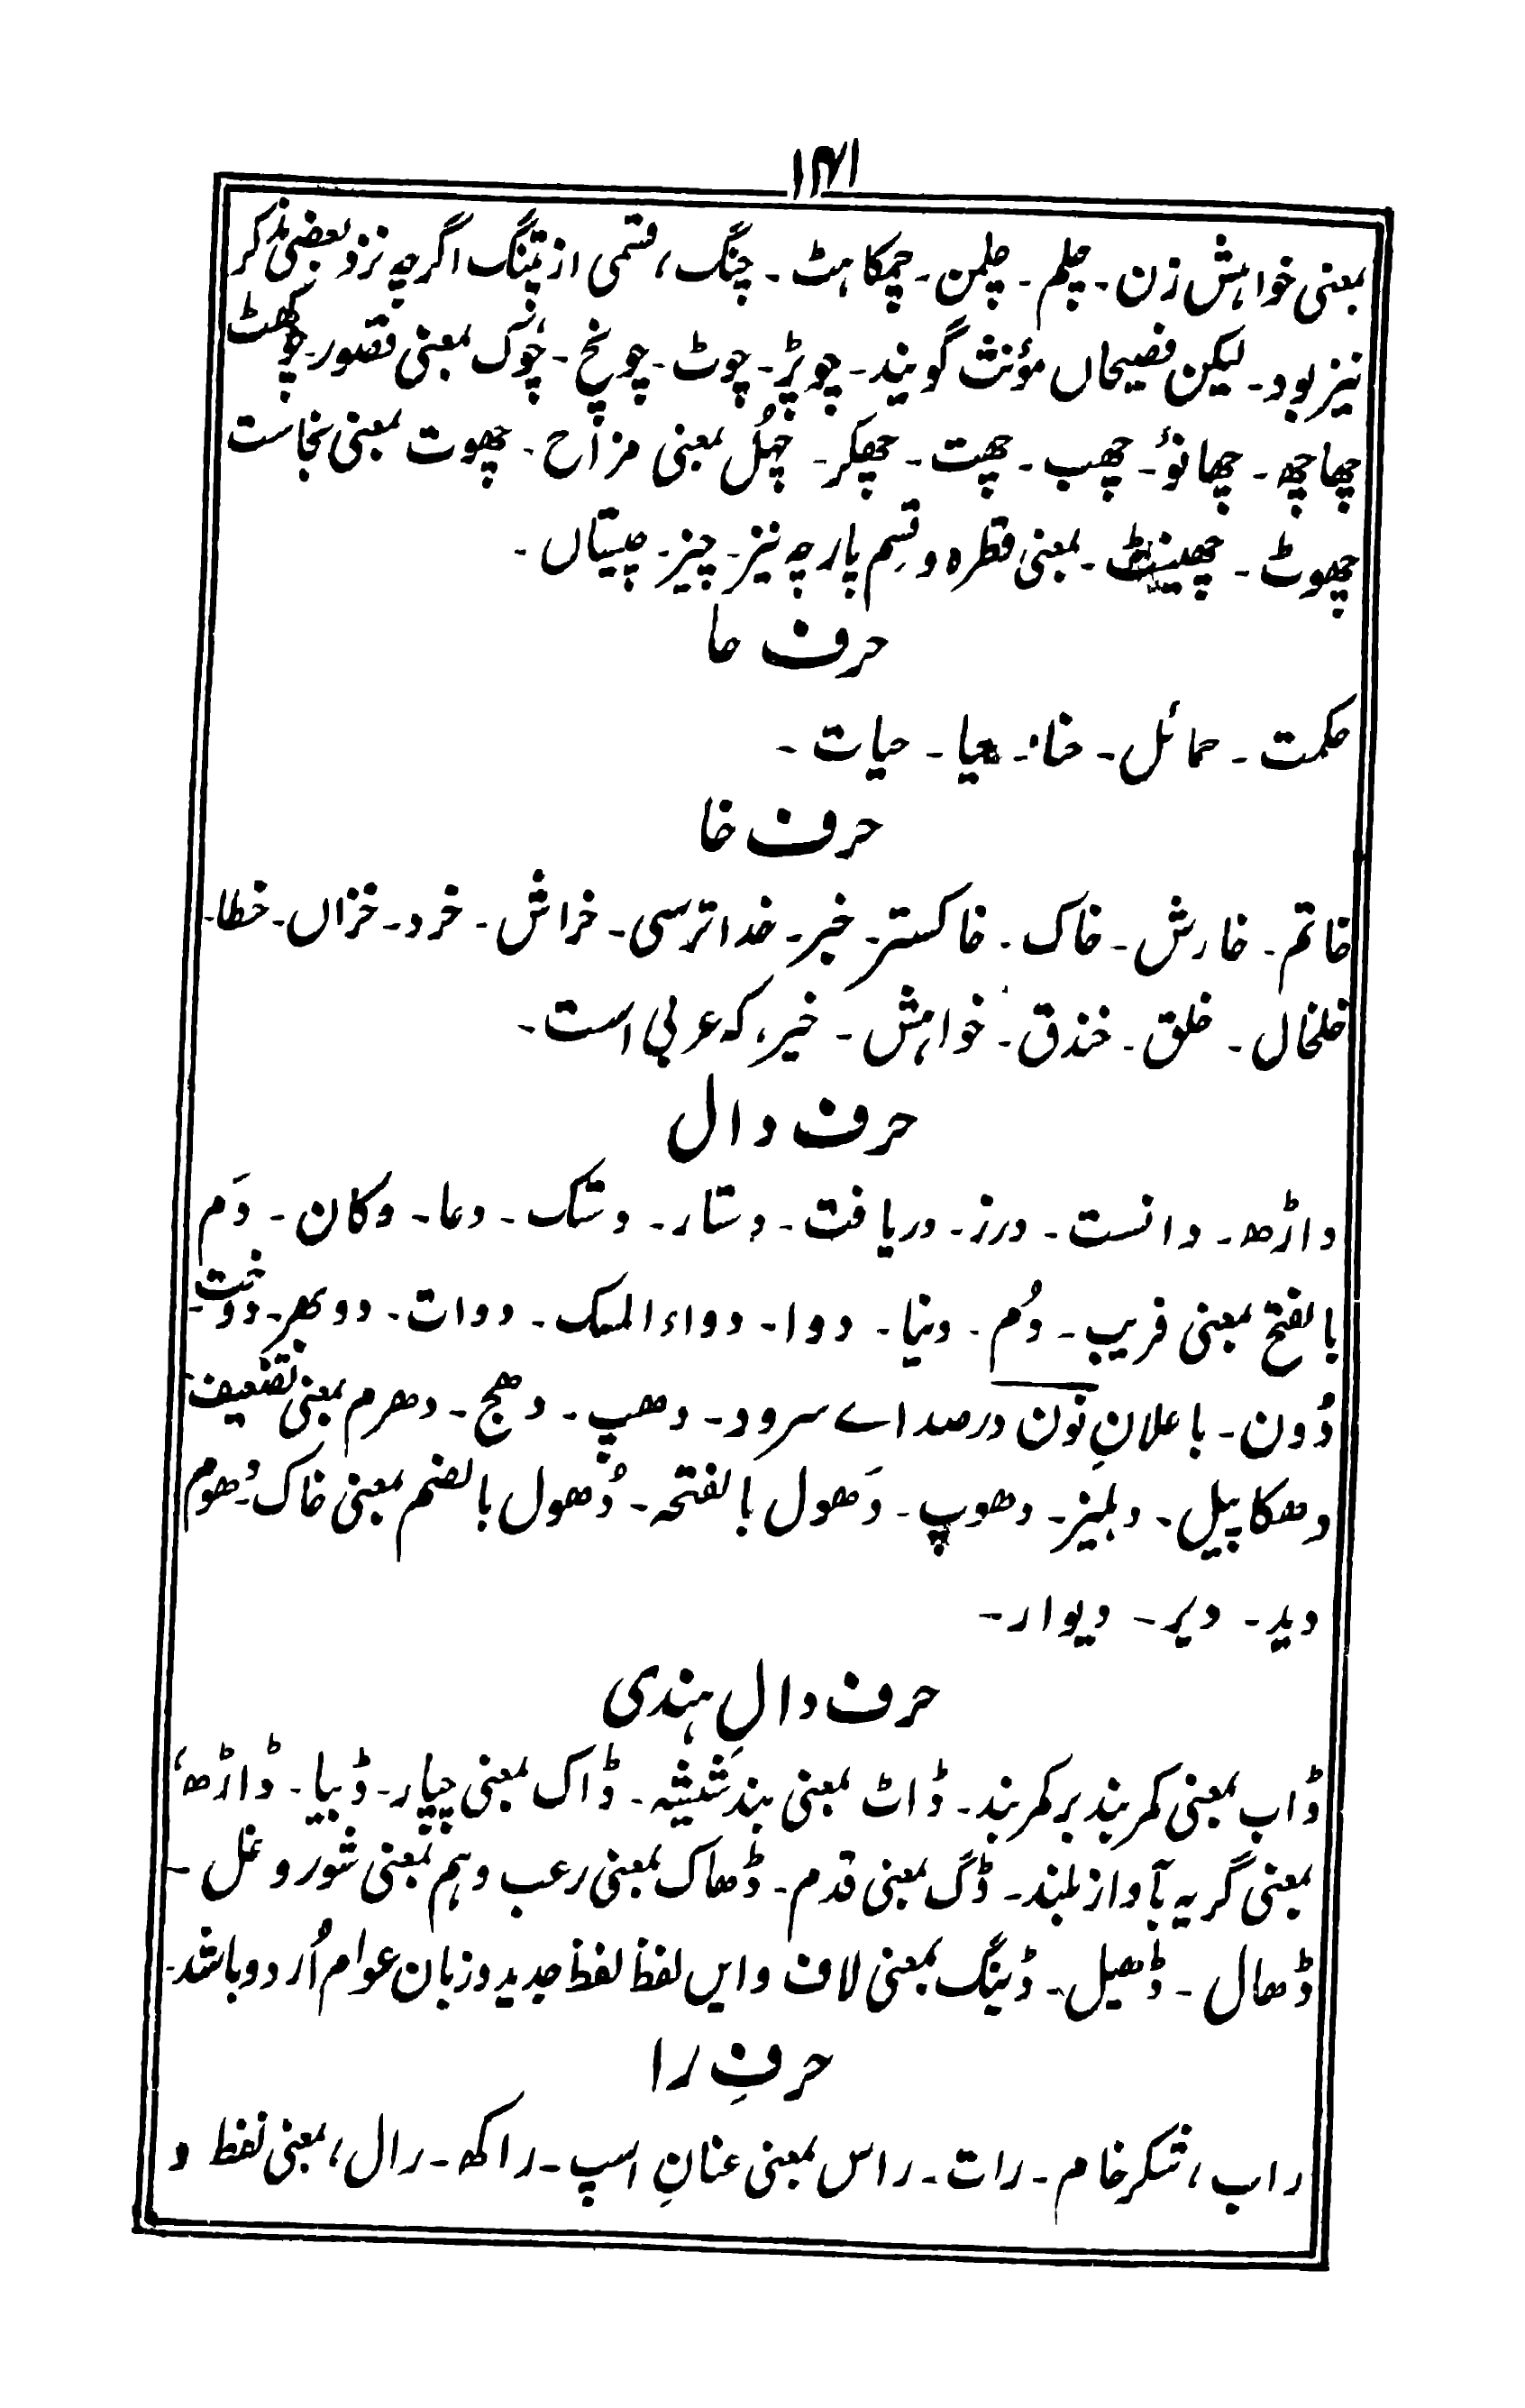 ۱۴۱
بمعنی خواہش زن۔ چلم۔ چلمن۔ چمکاہٹ۔ چنگ، قسمی از پتنگ اگرچہ نزد بعضی مذکر
نیز بود۔ لیکن فصیحاں مؤنث گویند۔ چوپڑ۔ چوٹ۔ چونچ۔ چُوک بمعنی قصور۔ چوکھٹ
چھاچھ۔ چھانؤ۔ چھب۔ چھت۔ چھکر۔ چُہل بمعنی مزاح۔ چھوت بمعنی نجاست
چھوٹ۔ چھینٹ۔ بمعنی قطرہ و قسِم پارچہ نیز۔ چیز۔ چیستاں۔
حرف حا
حکمت۔ حمائل۔ حنا۔ حیا۔ حیات۔
حرف خا
خاتم۔ خارش۔ خاک۔ خاکستر۔ خبر۔ خداترسی۔ خراش۔ خرد۔ خزاں۔ خطا۔
خلخال۔ خلق۔ خندق۔ خواہش۔ خیر، کہ عربی است۔
حرف دال
داڑھ۔ دانست۔ درز۔ دریافت۔ دستار۔ دستک۔ دعا۔ دکان۔ دَم
بالفتح بمعنی فریب۔ دُم۔ دنیا۔ دوا۔ دواء المسک۔ دوات۔ دوبھر۔
دُون۔ باعلانِ نون درصداے سرود۔ دھپ۔ دھج۔ دھرم بمعنی تضعیف
دھکاپیل۔ دہلیز۔ دھوپ۔ دَھول بالفتحہ۔ دُھول بالضم بمعنی خاک۔ دُھوم
دید۔ دیر۔ دیوار۔
حرف دالِ ہندی
ڈاب بمعنی کمربند برکمربند۔ ڈاٹ بمعنی بندِ شیشہ۔ ڈاک بمعنی چپار۔ ڈبیا۔ ڈاڑھ،
بمعنی گریہ بآواز بلند۔ ڈگ بمعنی قدم۔ ڈھاک بمعنی رعب وہم بمعنی شور و غل۔
ڈھال۔ ڈھیل۔ ڈینگ بمعنی لاف وایں لفظ لفظ جدید و زبان عوام اُردو باشد۔
حرفِ را
راب، شکرخام۔ رات۔ راس بمعنی عنانِ اسپ۔ راکھ۔ رال، بمعنی نفط و